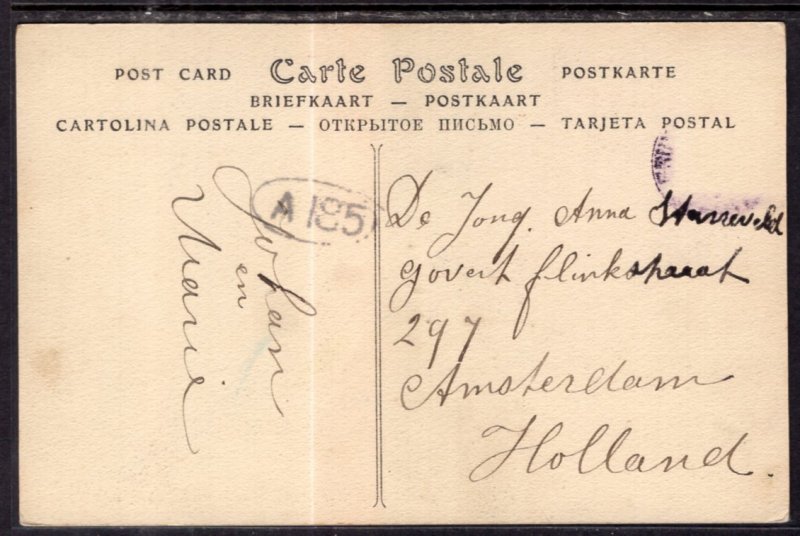 POST CARD Carte Postale POSTKARTE
BRIEFKAART — POSTKAART
CARTOLINA POSTALE — ОТКРЫТОЕ ПИСЬМО — TARJETA POSTAL
A 185
Johan
en
Marie
De Jong. Anna
govert flinkstraat
297
Amsterdam
Holland.